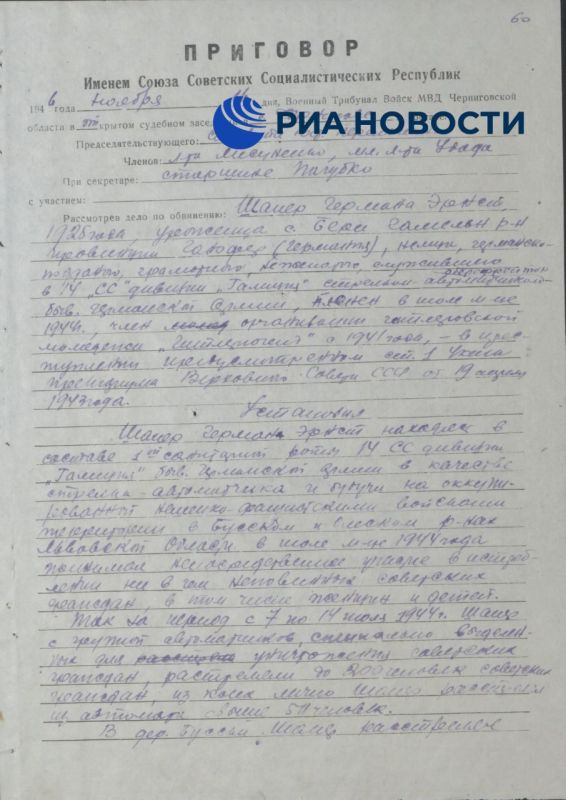 60
ПРИГОВОР
Именем Союза Советских Социалистических Республик
1946 года ноября дня, Военный Трибунал Войск МВД Черниговской
области в открытом судебном засе
РИА НОВОСТИ
Председательствующего:
Членов: л-та
При секретаре: старшине
с участием:
Рассмотрев дело по обвинению: Германа Эрнст,
1925 года, уроженца с.
провинции (Германия), немец,
грамотного,
в 14 „СС" дивизии „Галиция" стрелком
быв. армии, пленен в июле м-це
1944г., член организации гитлеровской
молодежи с 1941 года, – в прес-
туплении предусмотренном ст. 1 Указа
Президиума Верховного Совета СССР от 19 апреля
1943 года.
Установил
Герман Эрнст находясь в
составе 1ой санитарной роты 14 СС дивизии
„Галиция" быв. армии в качестве
стрелка-автоматчика и будучи на оккупи-
рованной немецко-фашистскими войсками
территории в Бусском и р-нах
Львовской области в июле м-це 1944 года
принимал непосредственное участие в истреб-
лении ни в чем неповинных советских
граждан, в том числе женщин и детей.
Так за период с 7 по 14 июля 1944г.
с группой автоматчиков, специально выделен-
ных для уничтожения советских
граждан, расстреляли до 200 человек советских
граждан, из коих лично расстрелял
из автомата свыше 50 человек.
В дер.